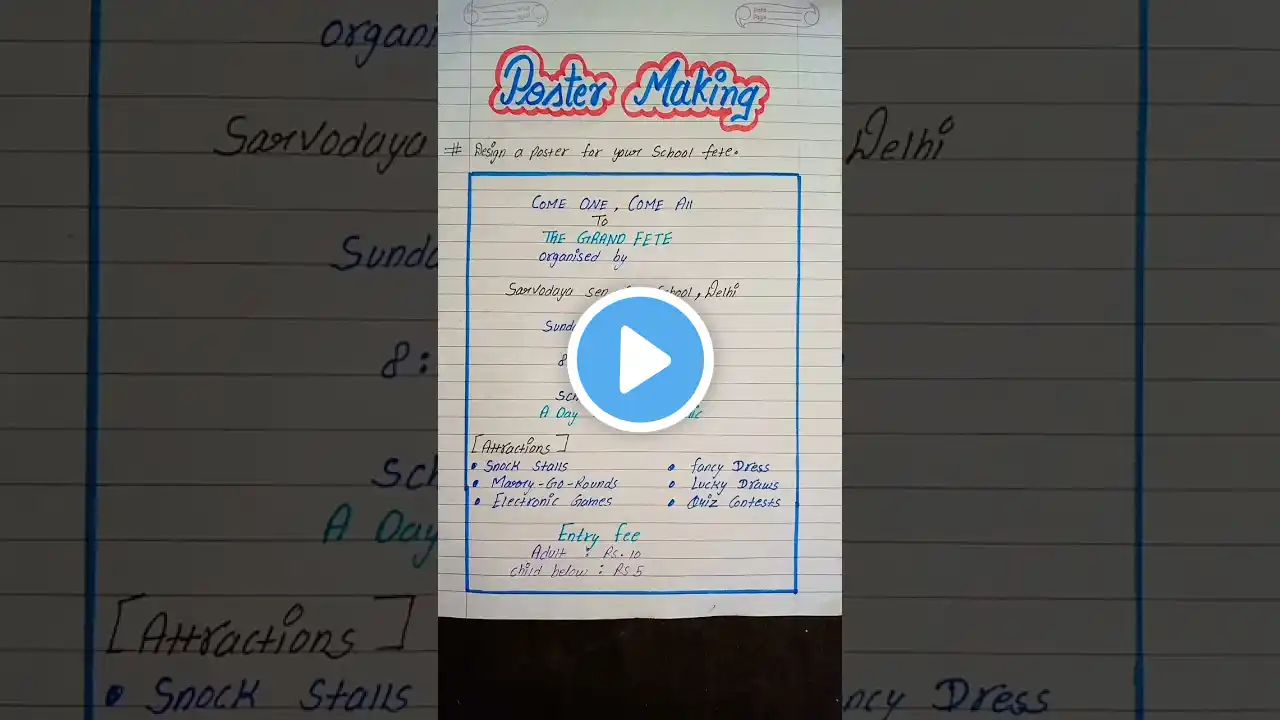 Poster Making
# Design a poster for your School fete.
COME ONE, COME All
To
THE GRAND FETE
organised by
Sarvodaya sen School, Delhi
8:
A Day
[Attractions]
• Snock Stalls
• Marry-Go-Rounds
• Electronic Games
• fancy Dress
• Lucky Draws
• Quiz Contests
Entry fee
Adult : Rs. 10
child below : Rs 5
organi
Sarvodaya
Delhi
Sunda
8:
Sch
A Day
[Attractions]
• Snock Stalls
ncy Dress